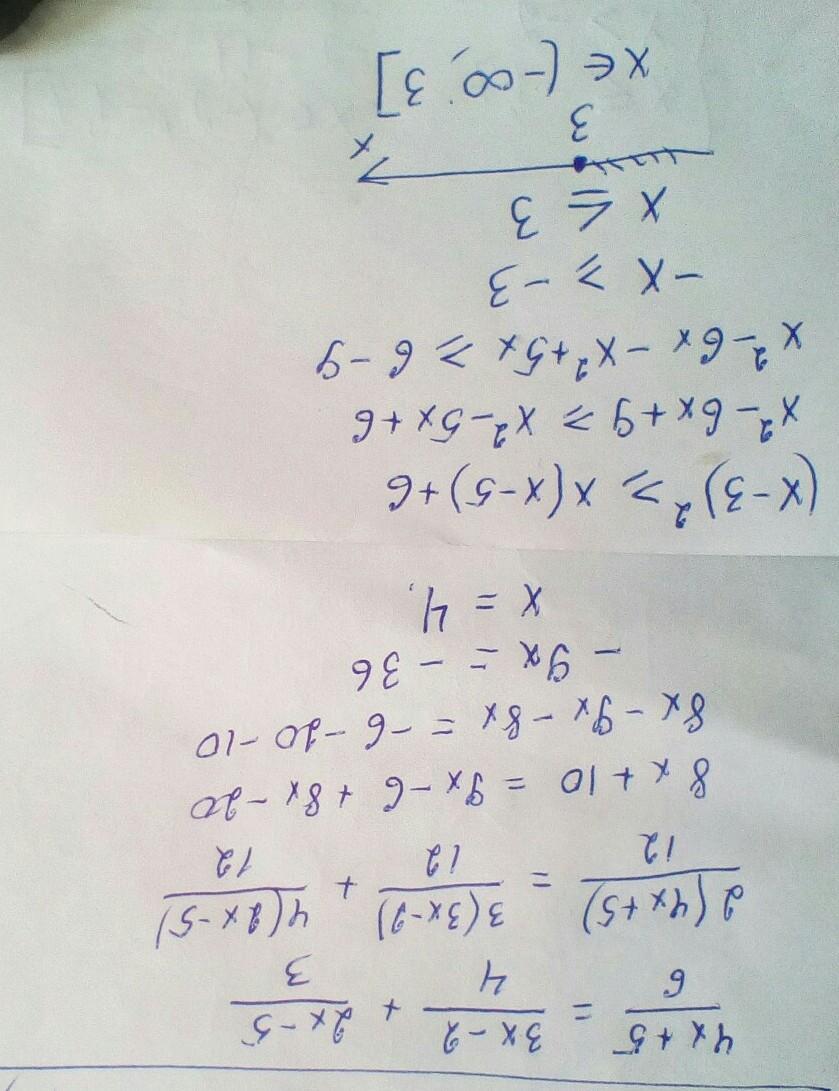 (4x+5)/6 = (3x-2)/4 + (2x-5)/3
2(4x+5)/12 = 3(3x-2)/12 + 4(2x-5)/12
8x+10 = 9x-6+8x-20
8x-9x-8x = -6-20-10
-9x = -36
x = 4.
(x-3)² ⩾ x(x-5)+6
x²-6x+9 ⩾ x²-5x+6
x²-6x-x²+5x ⩾ 6-9
-x ⩾ -3
x ≤ 3
x
3
x ∈ (-∞; 3]